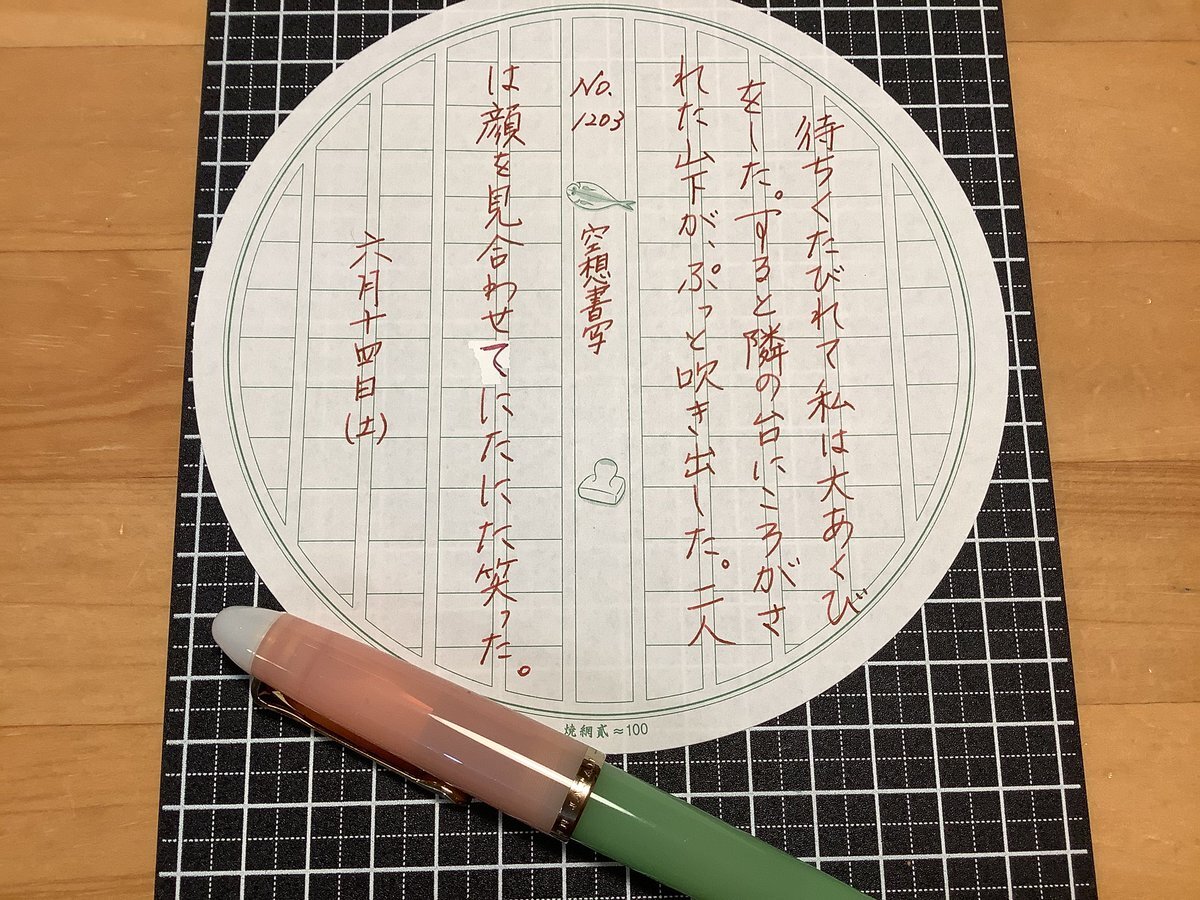 待ちくたびれて私は大あくび
をした。すると隣の台にころがさ
れた山下が、ぷっと吹き出した。二人
No.
1203
空想書写
は顔を見合わせてにたにた笑った。
六月十四日(土)
焼網貳≈100